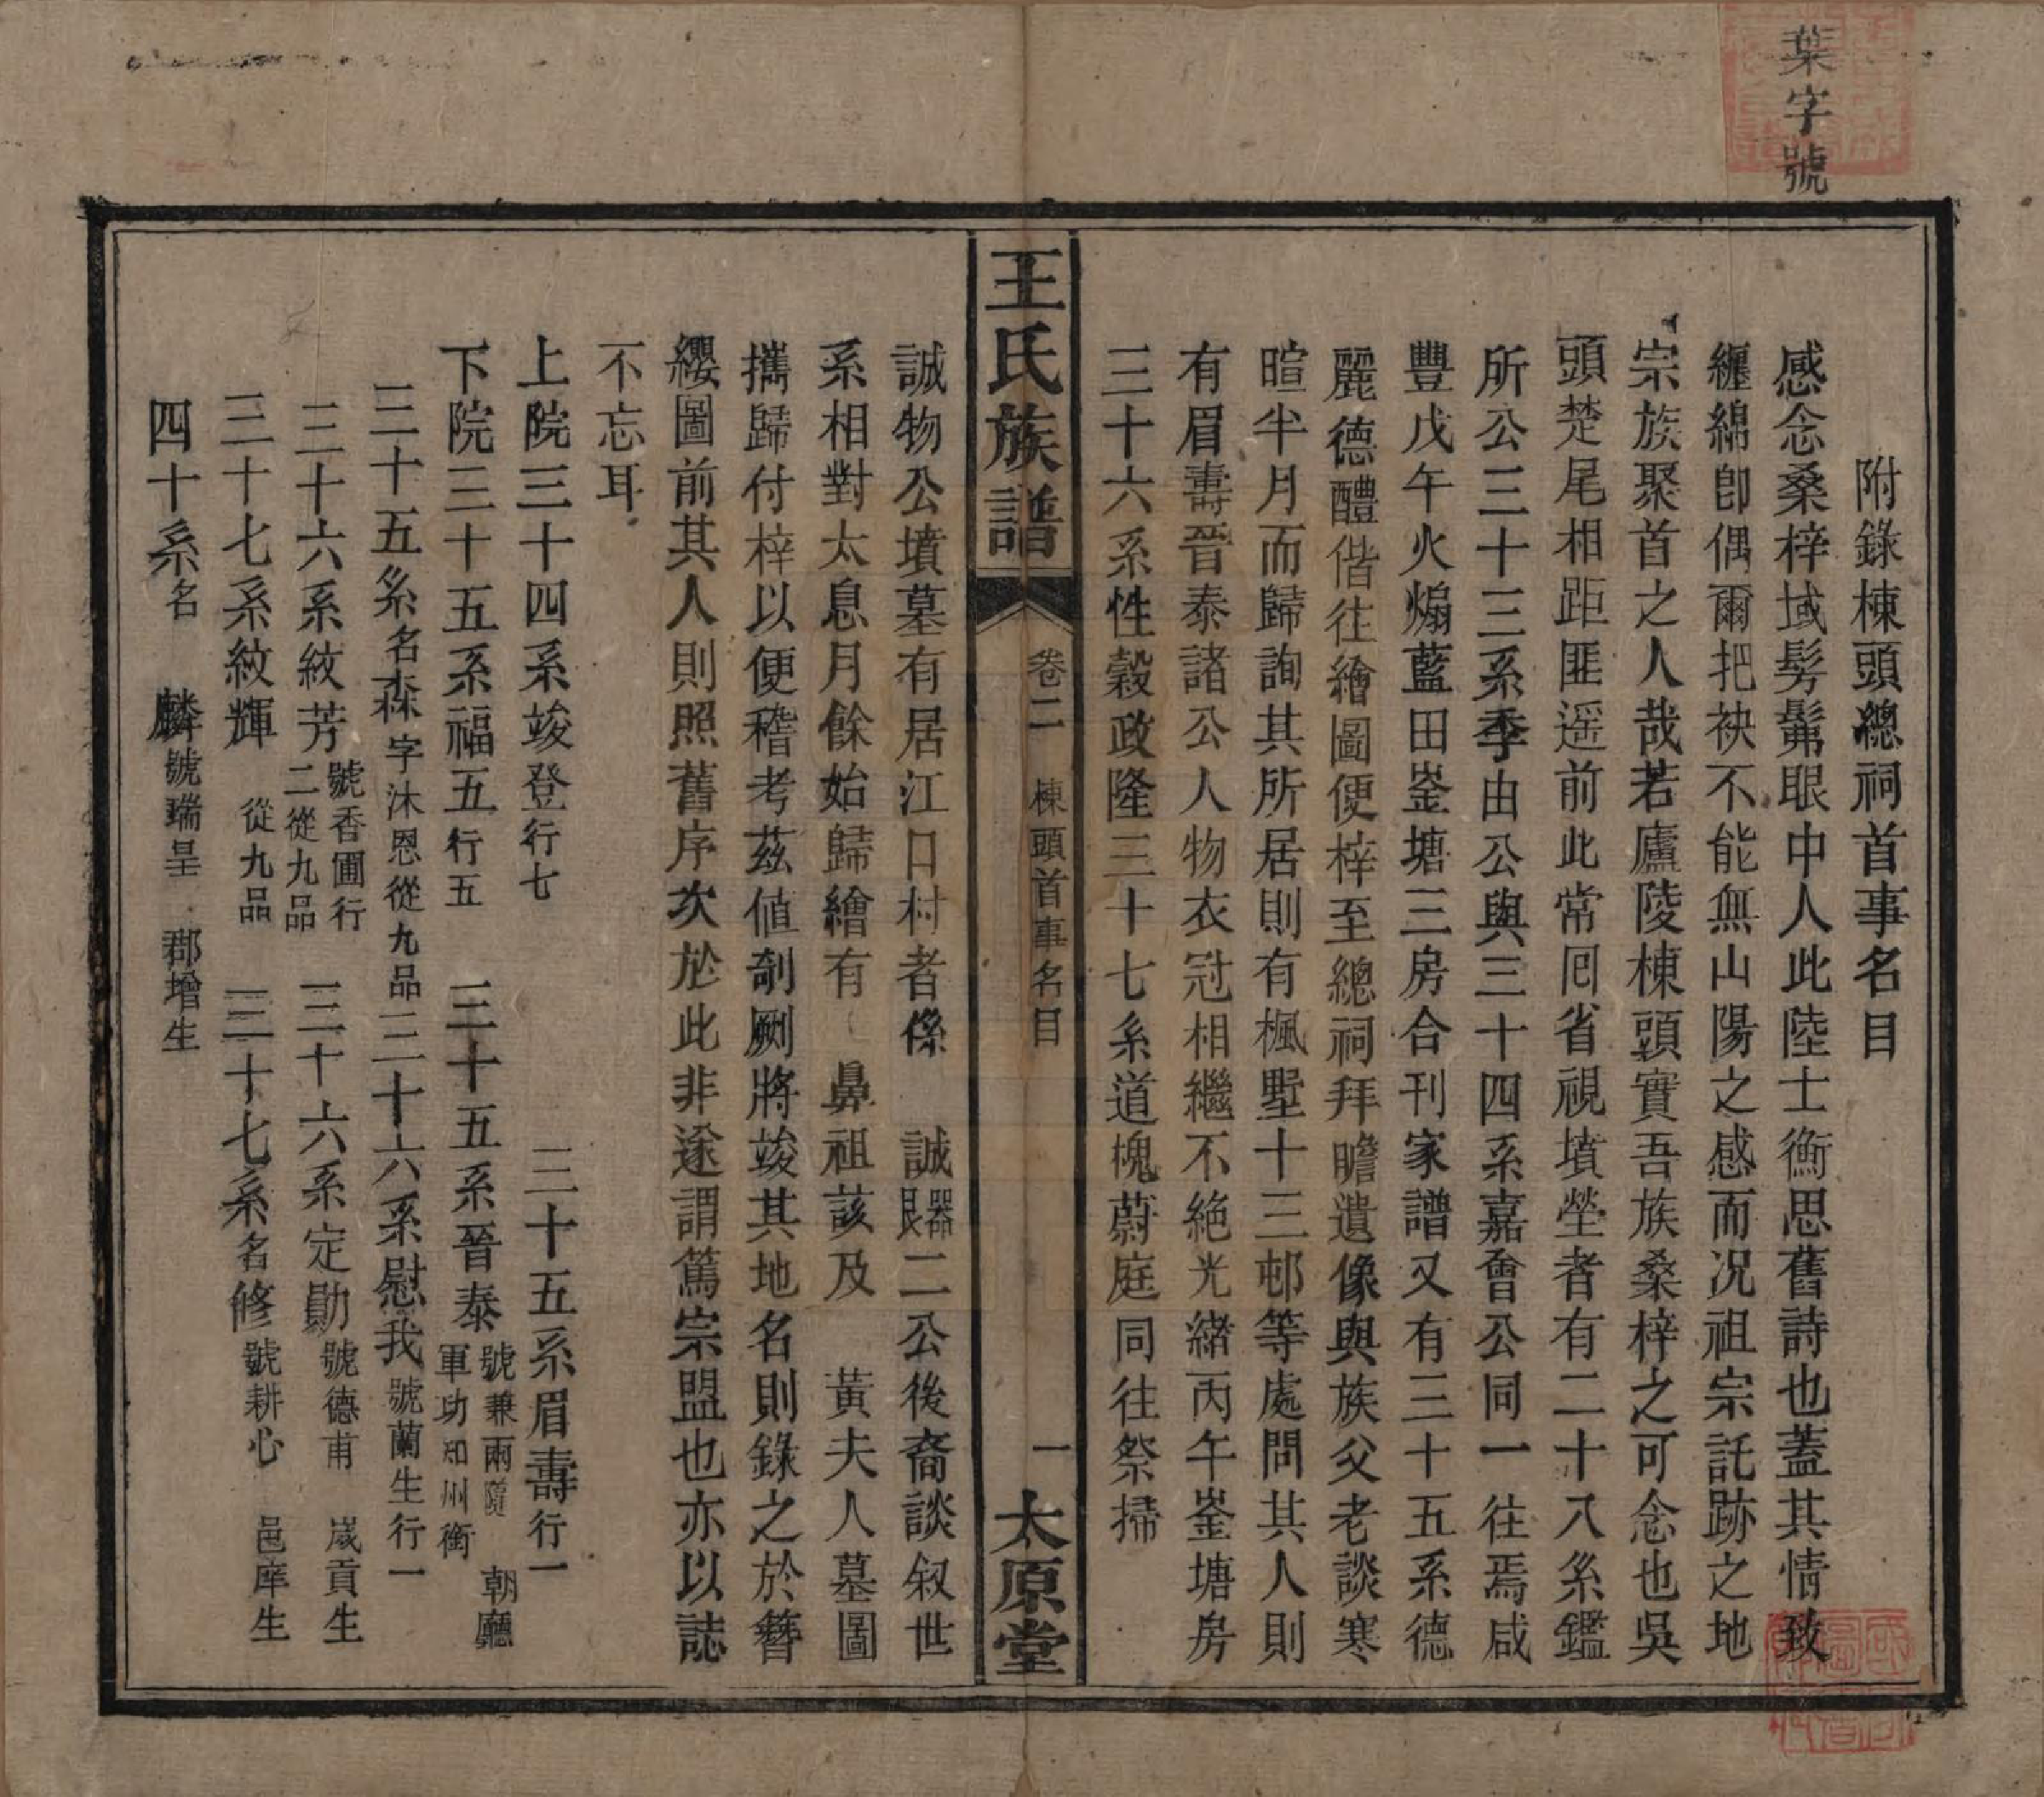 葉字號
附錄棟頭總祠首事名目
感念桑梓域髣髴眼中人此陸士衡思舊詩也蓋其情致
纏綿卽偶爾把袂不能無山陽之感而况祖宗託跡之地
宗族聚首之人哉若廬陵棟頭實吾族桑梓之可念也吳
頭楚尾相距匪遥前此常囘省視墳塋者有二十八系鑑
所公三十三系季由公與三十四系嘉會公同一往焉咸
豐戊午火煽藍田崟塘三房合刊家譜又有三十五系德
麗德醴偕往繪圖便梓至總祠拜瞻遺像與族父老談寒
暄半月而歸詢其所居則有楓墅十三邨等處問其人則
有眉壽晉泰諸公人物衣冠相繼不絶光緒丙午崟塘房
三十六系性穀政隆三十七系道槐蔚庭同往祭掃
王氏族譜
卷二 棟頭首事名目
一
太原堂
誠物公墳墓有居江口村者係 誠器民二公後裔談叙世
系相對太息月餘始歸繪有 鼻祖該及 黃夫人墓圖
攜歸付梓以便稽考茲值剞劂將竣其地名則錄之於簪
纓圖前其人則照舊序次於此非逾謂篤宗盟也亦以誌
不忘耳
上院三十四系竣登行七 三十五系眉壽行一
下院三十五系福五行五 三十五系晉泰號兼兩 軍功知州銜 朝廳
三十五系名森字沐恩從九品 三十六系慰我號蘭生行一
三十六系紋芳號香圃行二從九品 三十六系定勛號德甫 歲貢生
三十七系紋輝 從九品 三十七系名修號耕心 邑庠生
四十系名 麟號瑞呈 郡增生